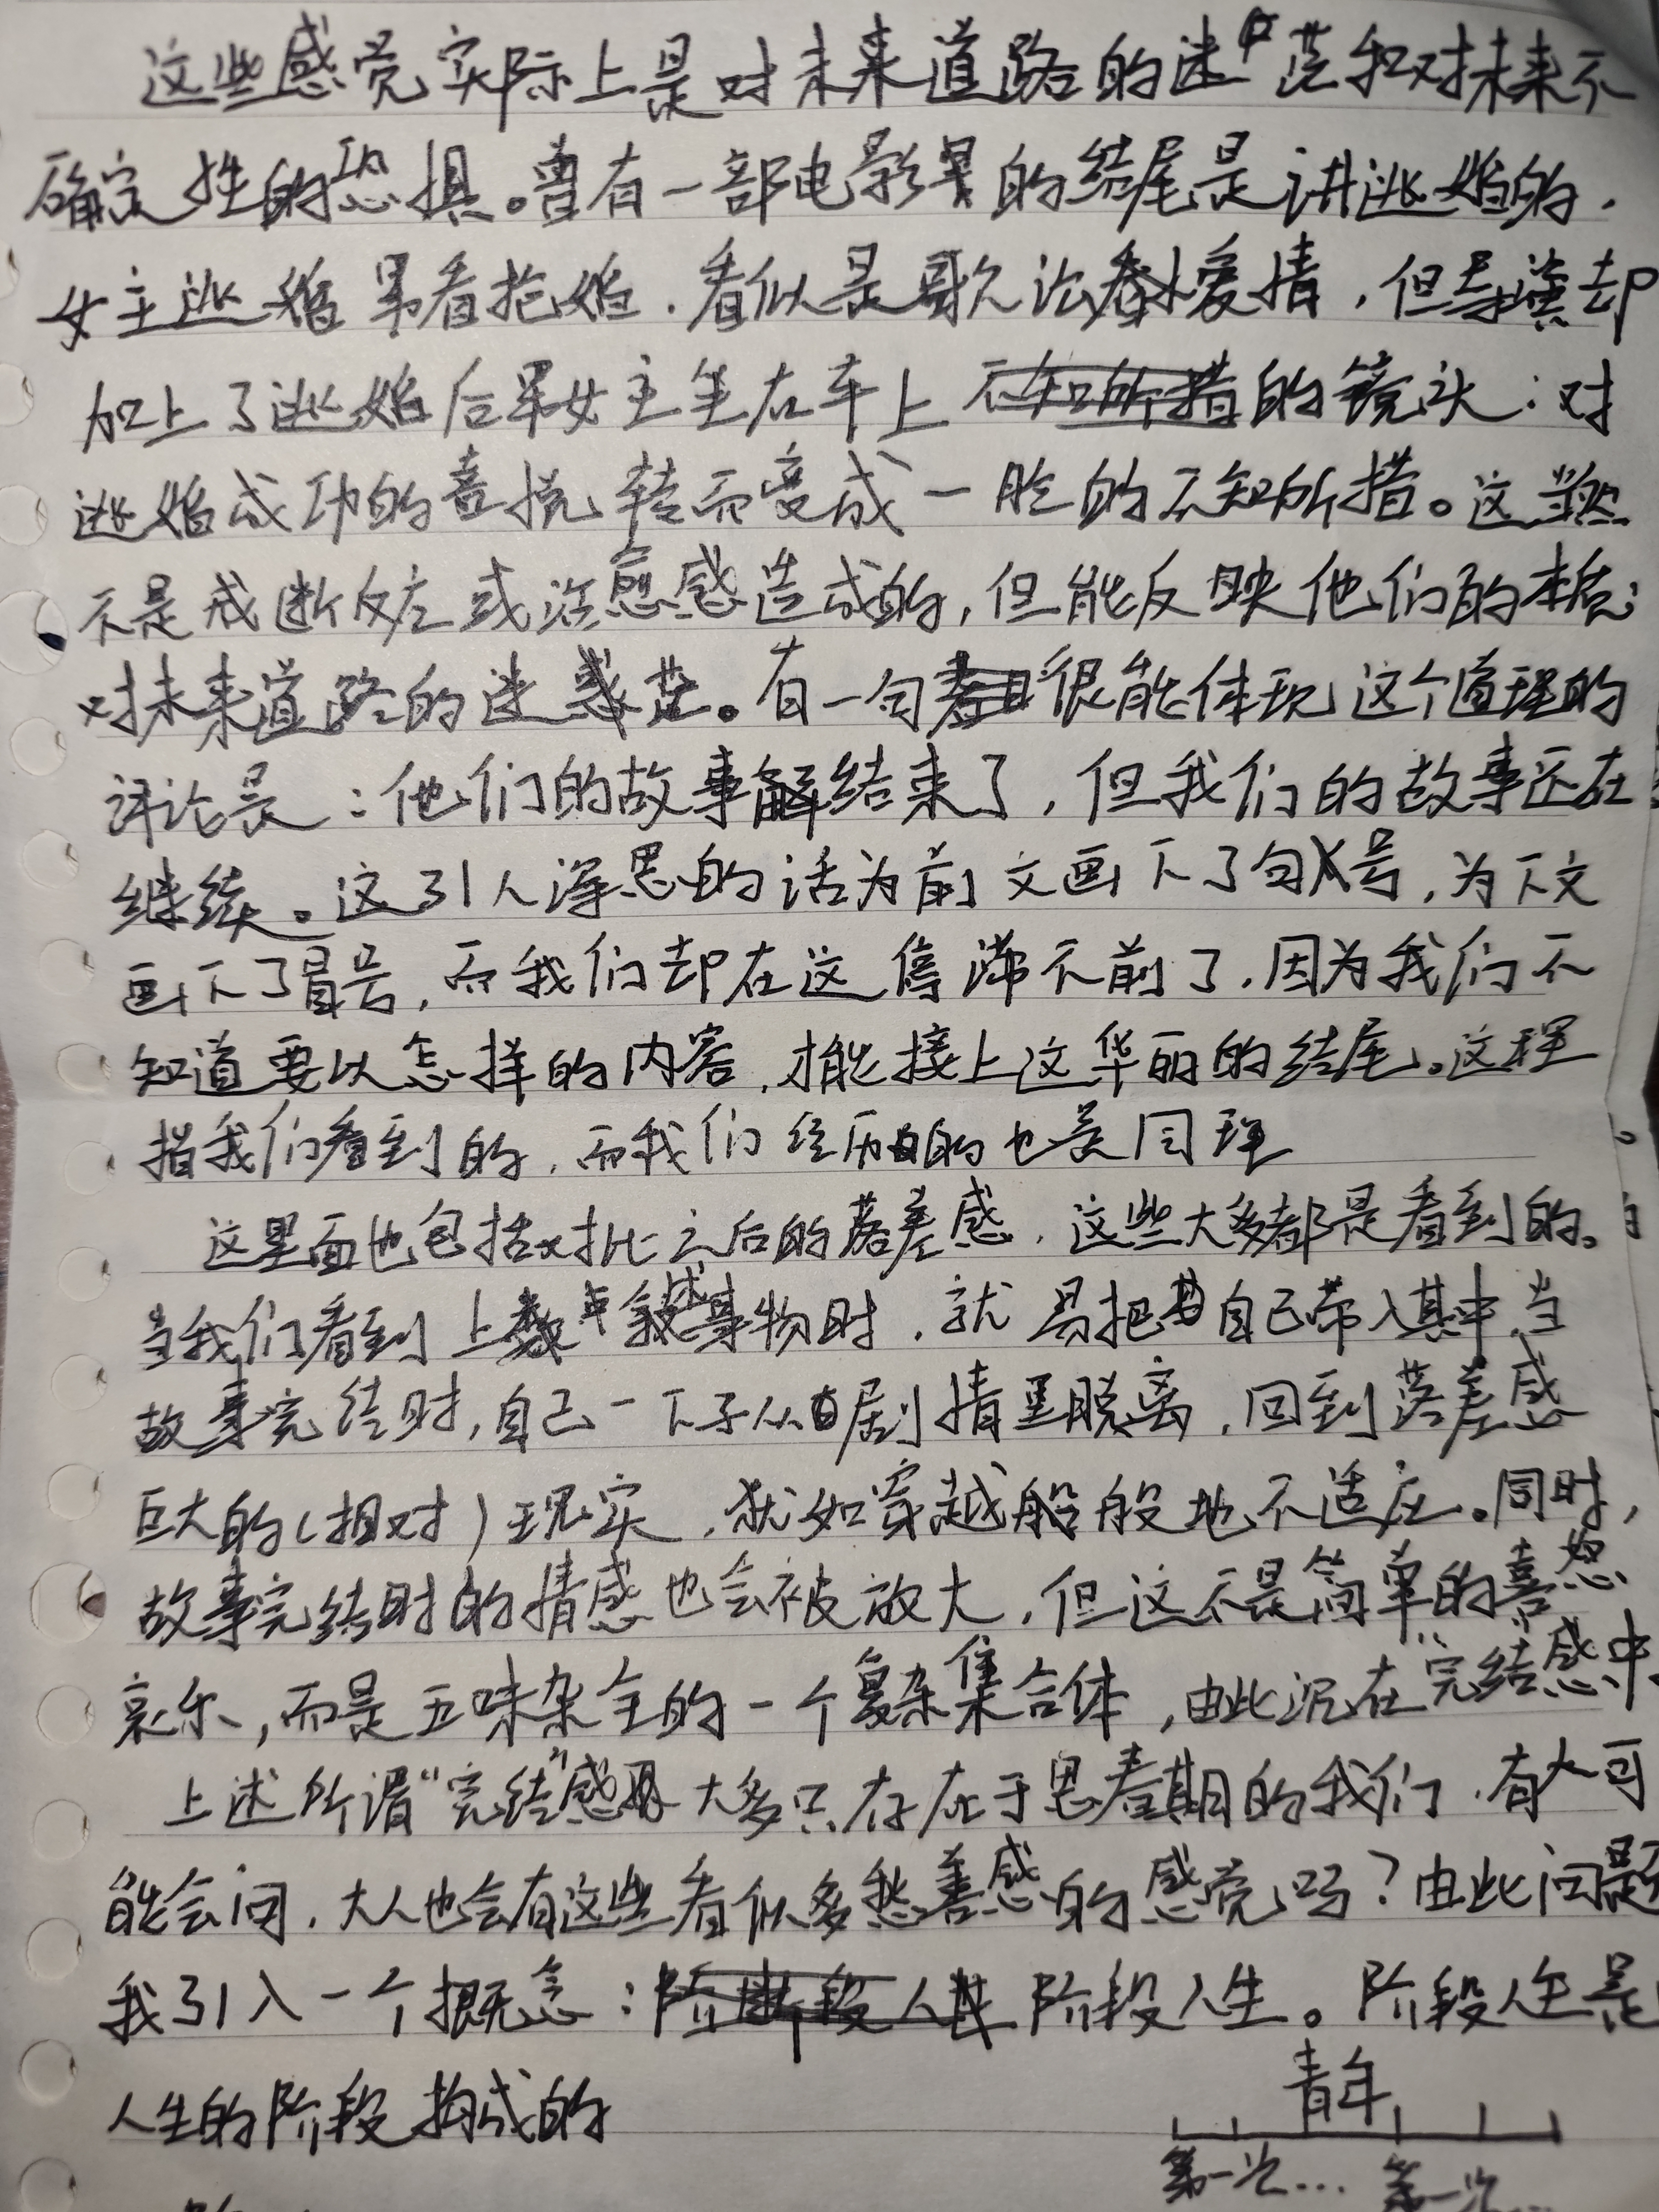 这些感觉实际上是对未来道路的迷茫和对未来不
确定性的恐惧。曾有一部电影的结尾是讲逃婚的，
女主逃婚男看抢婚，看似是歌讼爱情，但导演却
加上了逃婚后男女主坐在车上不知所措的镜头：对
逃婚成功的喜悦转而变成一脸的不知所措。这当然
不是戒断反应或治愈感造成的，但能反映他们的本质：
对未来道路的迷茫。有一句很能体现这个道理的
评论是：他们的故事结束了，但我们的故事还在
继续。这引人深思的话为前文画下了句号，为下文
画下了冒号，而我们却在这停滞不前了，因为我们不
知道要以怎样的内容，才能接上这华丽的结尾。这理
指我们看到的，而我们经历的也是同理
这里面也包括对比之后的落差感，这些大多都是看到的。
当我们看到上述事物时，就易把自己带入其中，当
故事完结时，自己一下子从剧情里脱离，回到落差感
巨大的（相对）现实，犹如穿越船般地不适应。同时，
故事完结时的情感也会被放大，但这不是简单的喜怒
哀乐，而是五味杂全的一个复杂集合体，由此沉在“完结”感中
上述所谓“完结”感大多只存在于思春期的我们，有人可
能会问，大人也会有这些看似多愁善感的感觉吗？由此问题
我引入一个概念：阶段人生。阶段人生是
人生的阶段构成的
青年
第一次... 第一次...